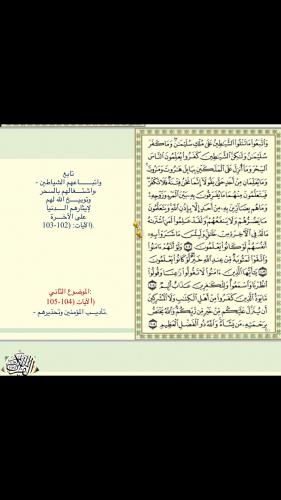 وَاتَّبَعُوا مَا تَتْلُو الشَّيَاطِينُ عَلَىٰ مُلْكِ سُلَيْمَٰنَ وَمَا كَفَرَ
سُلَيْمَٰنُ وَلَٰكِنَّ الشَّيَٰطِينَ كَفَرُوا يُعَلِّمُونَ النَّاسَ
السِّحْرَ وَمَا أُنزِلَ عَلَى الْمَلَكَيْنِ بِبَابِلَ هَٰرُوتَ وَمَٰرُوتَ
وَمَا يُعَلِّمَانِ مِنْ أَحَدٍ حَتَّىٰ يَقُولَا إِنَّمَا نَحْنُ فِتْنَةٌ فَلَا تَكْفُرْ
فَيَتَعَلَّمُونَ مِنْهُمَا مَا يُفَرِّقُونَ بِهِ بَيْنَ الْمَرْءِ وَزَوْجِهِ
وَمَا هُم بِضَارِّينَ بِهِ مِنْ أَحَدٍ إِلَّا بِإِذْنِ اللَّهِ وَيَتَعَلَّمُونَ
مَا يَضُرُّهُمْ وَلَا يَنفَعُهُمْ وَلَقَدْ عَلِمُوا لَمَنِ اشْتَرَىٰهُ
مَا لَهُ فِي الْآخِرَةِ مِنْ خَلَٰقٍ وَلَبِئْسَ مَا شَرَوْا بِهِ
أَنفُسَهُمْ لَوْ كَانُوا يَعْلَمُونَ ﴿١٠٢﴾ وَلَوْ أَنَّهُمْ ءَامَنُوا
وَاتَّقَوْا لَمَثُوبَةٌ مِّنْ عِندِ اللَّهِ خَيْرٌ لَّوْ كَانُوا يَعْلَمُونَ ﴿١٠٣﴾
يَٰأَيُّهَا الَّذِينَ ءَامَنُوا لَا تَقُولُوا رَٰعِنَا وَقُولُوا
انظُرْنَا وَاسْمَعُوا وَلِلْكَٰفِرِينَ عَذَابٌ أَلِيمٌ ﴿١٠٤﴾
مَّا يَوَدُّ الَّذِينَ كَفَرُوا مِنْ أَهْلِ الْكِتَٰبِ وَلَا الْمُشْرِكِينَ
أَن يُنَزَّلَ عَلَيْكُم مِّنْ خَيْرٍ مِّن رَّبِّكُمْ وَاللَّهُ يَخْتَصُّ
بِرَحْمَتِهِ مَن يَشَاءُ وَاللَّهُ ذُو الْفَضْلِ الْعَظِيمِ ﴿١٠٥﴾
تابع
واتباعهم الشياطين -
واشتغالهم بالسحر
وتوبيخ الله لهم
لإيثارهم الدنيا
على الآخرة
.(الآيات: (102-103
:الموضوع الثاني
(الآيات (104-105
.تأديب المؤمنين وتحذيرهم -